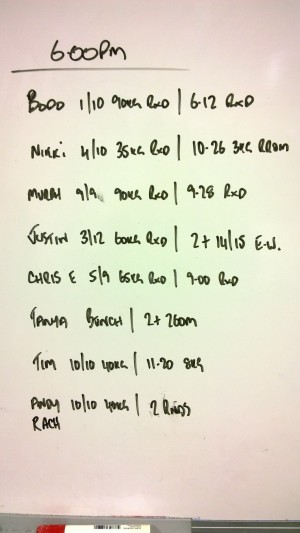 6:00pm
BODD 1/10 90KG RXD | 6-12 RXD
Nikki 4/10 35KG RXD | 10-26 3KG RROM
MURRAY 9/9 90KG RXD | 9-28 RXD
JUSTIN 3/12 60KG RXD | 2+14/15 E.W.
CHRIS E 5/9 65KG RXD | 9-00 RXD
TANYA BENCH | 2+200m
Tim 10/10 40KG | 11-20 8KG
ANDY 10/10 40KG | 2 RNDS
RACH